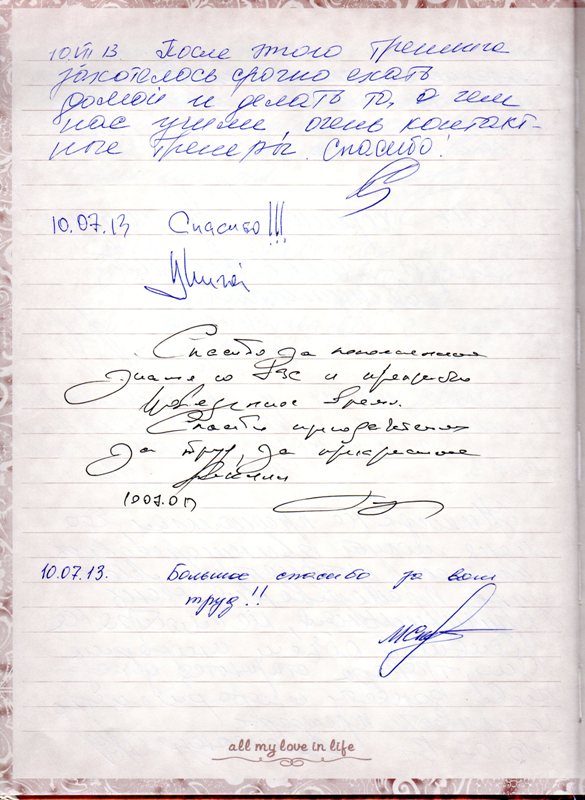 10.VII 13 После этого тренинга
захотелось срочно ехать
домой и делать то, о чем
нас учили, очень контакт-
ные тренеры. Спасибо!
10.07.13 Спасибо!!!
Спасибо за пополнение
знаний о ВЭС и прекрасно
проведенное время.
Спасибо преподавателям
за труд, за прекрасные
10.07.13. Большое спасибо за ваш
труд!!
all my love in life